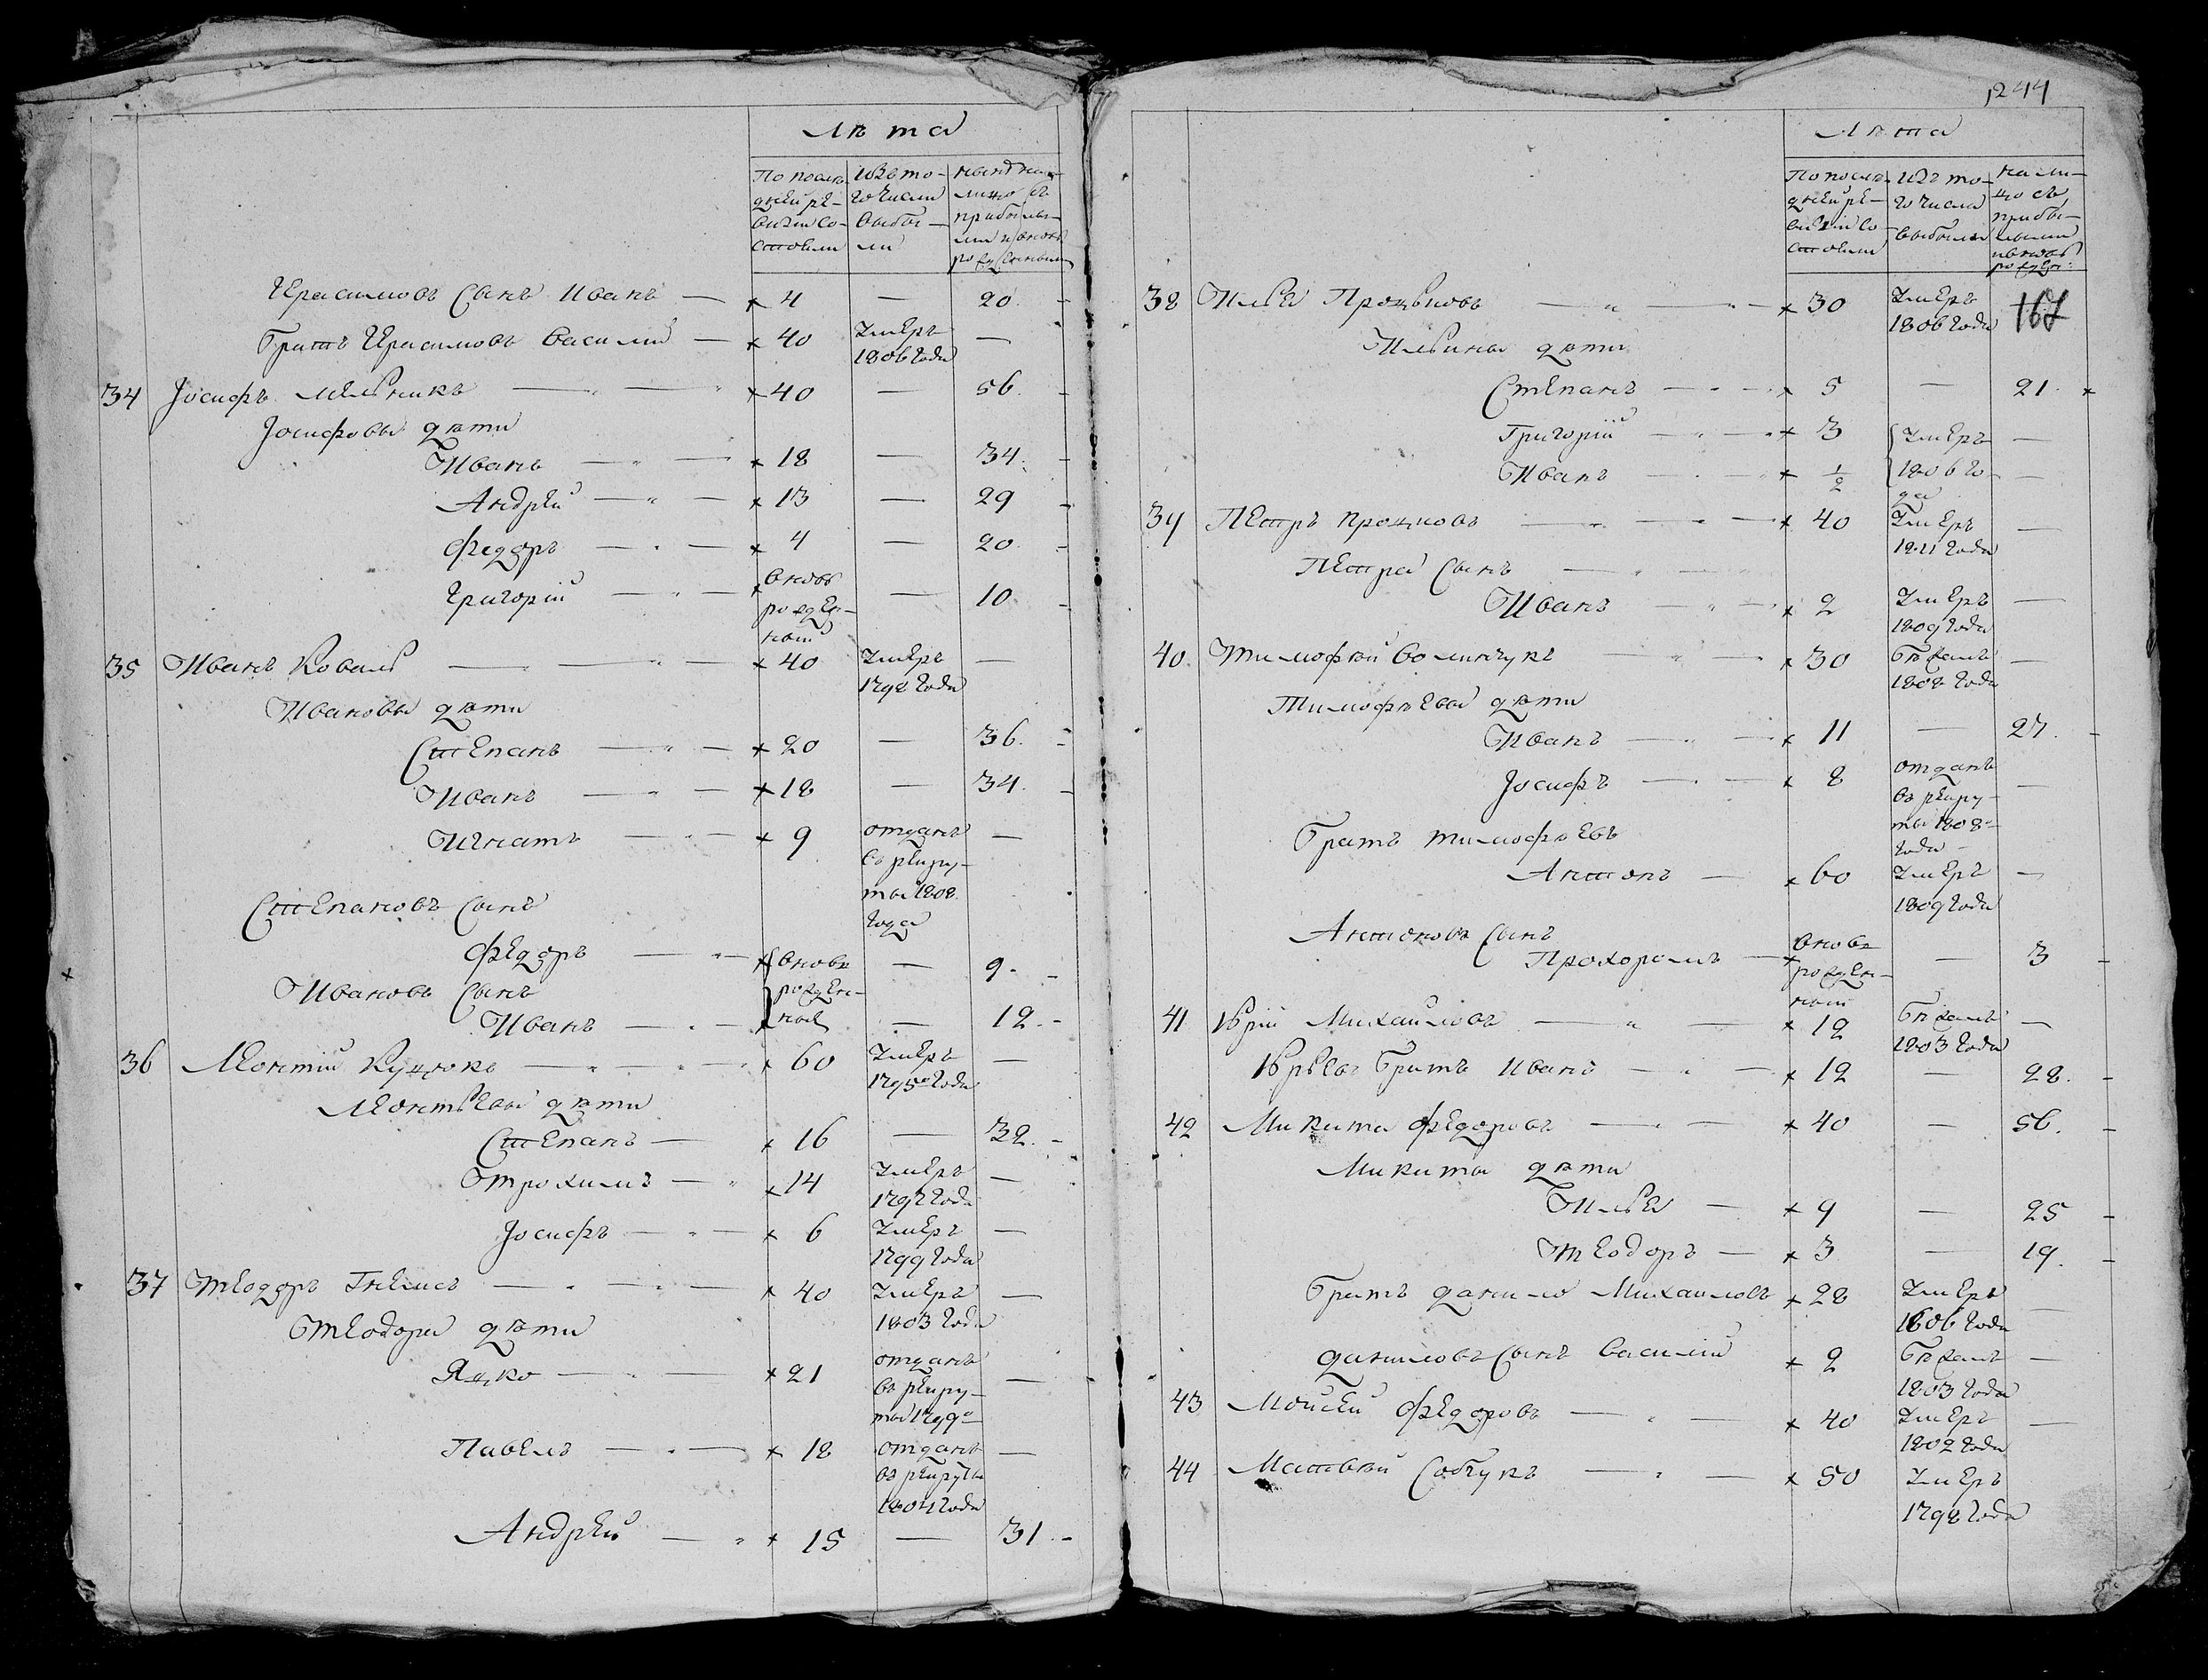 Лѣта
По послѣ- Изъ то- нынѣ на-
дней ре- го числа лицо съ
визіи со- выбы- прибылы-
стояли ли ми и вновь
рожденными
Герасимовъ сынъ Иванъ — 4 — 20.
Братъ Герасимовъ Василій — 40 умеръ 1806 года —
34 Іосифъ Мельникъ — 40 — 56.
Іосифовы дѣти
Иванъ — 18 — 34.
Андрей — 13 — 29
Федоръ — 4 — 20.
Григорій — вновь рожденный — 10
35 Иванъ Коваль — 40 умеръ 1798 года —
Ивановы дѣти
Степанъ — 20 — 36.
Иванъ — 18 — 34.
Игнатъ — 9 отданъ въ рекруты 1808 года —
Степановъ сынъ
Федоръ — вновь — 9.
Ивановъ сынъ рожден-
Иванъ — ные — 12.
36 Леонтій — 60 умеръ 1795 года —
Леонтьевы дѣти
Степанъ — 16 — 32.
Трохимъ — 14 умеръ 1797 года —
Іосифъ — 6 умеръ 1799 года —
37 Теодоръ — 40 умеръ 1803 года —
Теодора дѣти
Яцко — 21 отданъ въ рекруты 1799 —
Павелъ — 18 отданъ въ рекруты 1804 года —
Андрей — 15 — 31.
244
Лѣта
По послѣ- Изъ то- на ли-
дней ре- го числа цо съ
визіи со- выбыли прибы-
стояли лыми
и вновь
рожден:
38 Илья Процьковъ — 30 умеръ 1806 года 167
Ильины дѣти
Степанъ — 5 — 21.
Григорій — 3 умеръ —
Иванъ — 1/2 1806 го- да —
39 Петръ Процковъ — 40 умеръ 1811 года —
Петра сынъ
Иванъ — 2 умеръ 1809 года —
40. Тимофѣй — 30 бѣжалъ 1808 года —
Тимофѣевы дѣти
Иванъ — 11 — 27.
Іосифъ — 8 отданъ въ рекруты 1808 года —
Братъ Тимофѣевъ
Антонъ — 60 умеръ 1809 года —
Антоновъ сынъ
Прохоромъ — вновь рожденный — 3
41 Юрій Михайловъ — 12 бѣжалъ 1803 года —
Юрьевъ братъ Иванъ — 12 — 28.
42 Микита Федоровъ — 40 — 56.
Микиты дѣти
Илья — 9 — 25
Теодоръ — 3 — 19.
Братъ Данило Михайловъ 28 умеръ 1806 года —
Даниловъ сынъ Василій 2 бѣжалъ 1803 года —
43 Мойсей Федоровъ — 40 умеръ 1802 года —
44 Матвѣй — 50 умеръ 1798 года